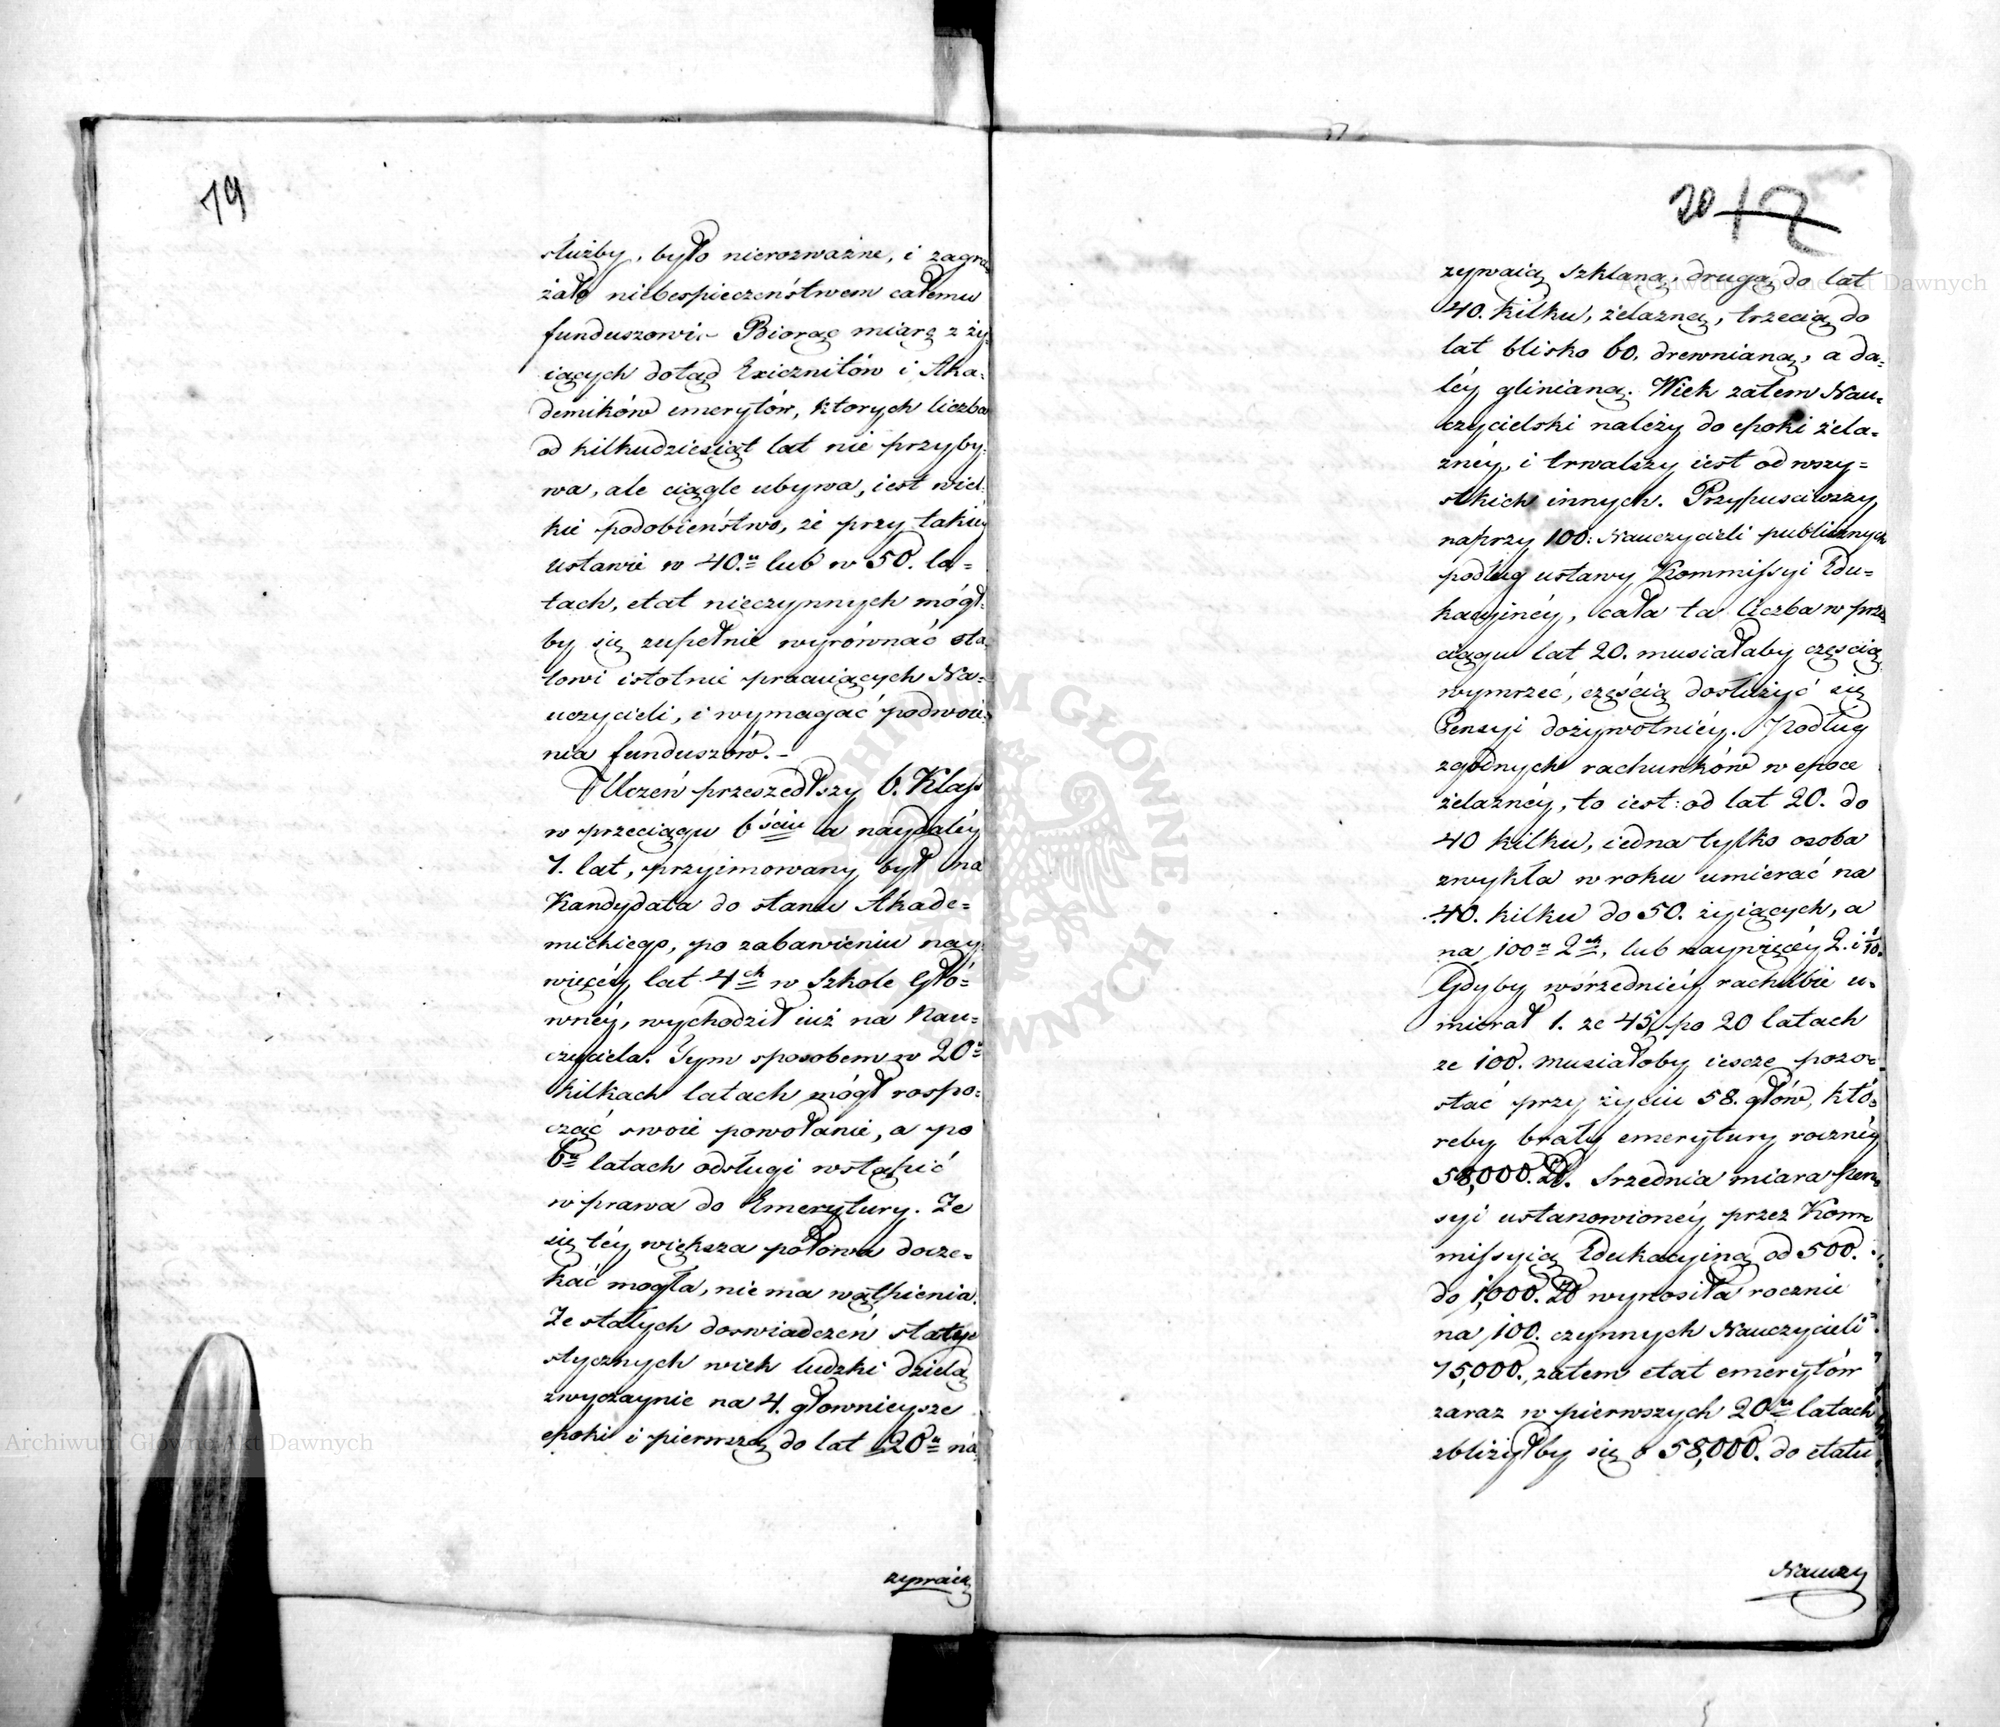 19
służby, było nierozważne, i zagra
żało niebespieczeństwem całemu
funduszowi.- Biorąc miarę z ży-
iących dotąd Exiezuitów i Aka-
demików emerytów, których liczba
od kilkudziesiąt lat nie przyby-
wa, ale ciągle ubywa, iest wiel-
kie podobieństwo, że przy takiéy
ustawie w 40.u lub w 50. la=
tach, etat nieczynnych mógł-
by się zupełnie wyrównać eta-
towi istotnie pracuiących Na-
uczycieli, i wymagać podwoie-
nia funduszów.-
Uczeń przeszedłszy 6. Klass
w przeciągu 6ściu a naydaléy
7. lat, przyimowany był na
Kandydata do stanu Akade=
mickiego, po zabawieniu nay-
więcéy lat 4ch w Szkole Głó-
wnéy, wychodził iuż na Nau-
czyciela. Tym sposobem w 20u
kilkach latach mógł rospo-
cząć swoie powołanie, a po
6u latach odsługi wstąpić
w prawa do Emerytury. Że
się téy większa połowa docze-
kać mogła, nie ma wątpienia.
Ze stałych doswiadczeń staty-
stycznych wiek ludzki dzielą
zwyczaynie na 4. głownieysze
epoki i pierwszą do lat 20u na
zywaią
20 12
zywaią szklaną, drugą do lat
40. kilku, żelazną, trzecią do
lat blisko 60. drewnianą, a da=
léy glinianą. Wiek zatem Nau-
czycielski należy do epoki żela-
znéy, i trwalszy iest od wszy=
stkich innych. Przypuściwszy
naprzy 100: Nauczycieli publicznych
podług ustawy Kommissyi Edu=
kacyinéy, cała ta liczba w prze
ciągu lat 20. musiałaby częścią
wymrzeć, częścią dosłużyć się
Pensyi dożywotniéy. Podług
zgodnych rachunków w epoce
żelaznéy, to iest: od lat 20. do
40 kilku, iedna tylko osoba
zwykła w roku umierać na
40. kilku do 50. żyiących, a
na 100u 2ch, lub naywięcéy 2. i 1/10.
Gdyby wśrzedniéy rachubie u-
mierał 1. ze 45, po 20 latach
ze 100. musiałoby iescze pozo-
stać przy życiu 58. głów, któ-
reby brały emerytury roczniéy
58,000. Zł. Srzednia miara pen
syi ustanowionéy przez Kom-
missyią Edukacyiną od 500.
do 1,000. Zł wynosiła rocznie
na 100. czynnych Nauczycieli
75,000., zatem etat emerytów
zaraz w pierwszych 20u latach
zbliżyłby się o 58,000. do etatu
Nauczy
Archiwum Główne Akt Dawnych
Archiwum Główne Akt Dawnych